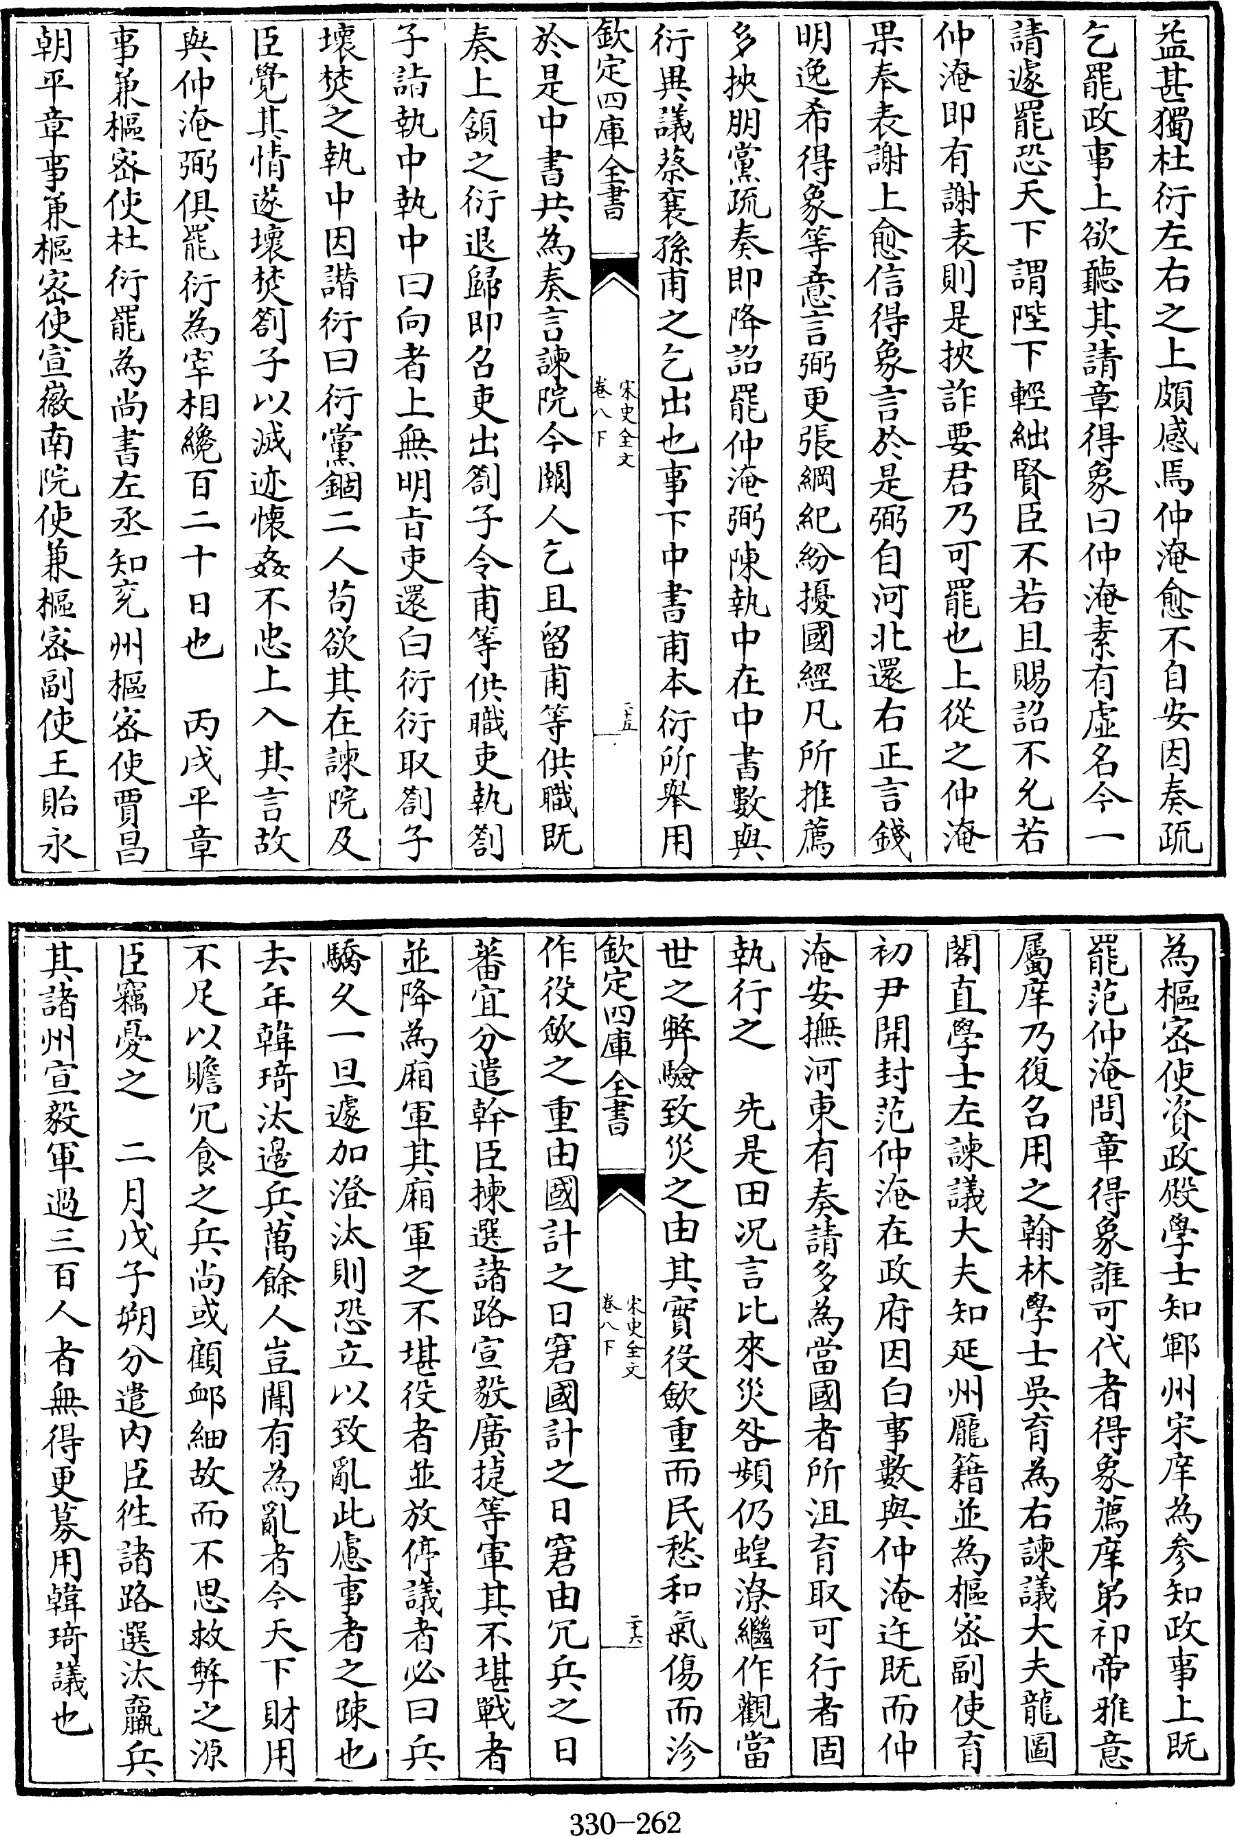 益甚獨杜衍左右之上頗感焉仲淹愈不自安因奏疏
乞罷政事上欲聽其請章得象曰仲淹素有虛名今一
請遽罷恐天下謂陛下輕絀賢臣不若且賜詔不允若
仲淹即有謝表則是挾詐要君乃可罷也上從之仲淹
果奉表謝上愈信得象言於是弼自河北還右正言錢
明逸希得象等意言弼更張綱紀紛擾國經凡所推薦
多挾朋黨疏奏即降詔罷仲淹弼陳執中在中書數與
衍異議蔡襄孫甫之乞出也事下中書甫本衍所舉用
欽定四庫全書
宋史全文
卷八下
二十五
於是中書共為奏言諫院今闕人乞且留甫等供職既
奏上頷之衍退歸即召吏出劄子令甫等供職吏執劄
子詣執中執中曰向者上無明旨吏還白衍衍取劄子
壞焚之執中因譖衍曰衍黨錮二人苟欲其在諫院及
臣覺其情遂壞焚劄子以滅迹懷姦不忠上入其言故
與仲淹弼俱罷衍為宰相纔百二十日也　丙戌平章
事兼樞密使杜衍罷為尚書左丞知兖州樞密使賈昌
朝平章事兼樞密使宣徽南院使兼樞密副使王貽永
為樞密使資政殿學士知鄆州宋庠為參知政事上既
罷范仲淹問章得象誰可代者得象薦庠弟祁帝雅意
屬庠乃復召用之翰林學士吳育為右諫議大夫龍圖
閣直學士左諫議大夫知延州龐籍並為樞密副使育
初尹開封范仲淹在政府因白事數與仲淹迕既而仲
淹安撫河東有奏請多為當國者所沮育取可行者固
執行之　先是田況言比來災咎頻仍蝗潦繼作觀當
世之弊驗致災之由其實役斂重而民愁和氣傷而沴
作役斂之重由國計之日窘國計之日窘由冗兵之日
欽定四庫全書
宋史全文
卷八下
二十六
蕃宜分遣幹臣揀選諸路宣毅廣捷等軍其不堪戰者
並降為廂軍其廂軍之不堪役者並放停議者必曰兵
驕久一旦遽加澄汰則恐立以致亂此慮事者之踈也
去年韓琦汰邊兵萬餘人豈聞有為亂者今天下財用
不足以贍冗食之兵尚或顧䘏細故而不思救弊之源
臣竊憂之　二月戊子朔分遣內臣徃諸路選汰羸兵
其諸州宣毅軍過三百人者無得更募用韓琦議也
330-262